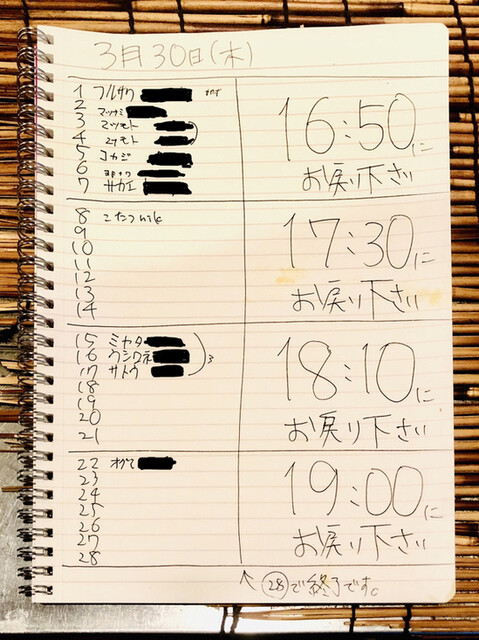 3月30日(木)
1 フルサワ
2
3 マツモト
4 マツモト
5 コカジ
6
7 サカエ
16:50に
お戻り下さい
8 こたつ
9
10
11
12
13
14
17:30に
お戻り下さい
15 ミヤタ
16 クシワネ
17 サトウ
3
18
19
20
21
18:10に
お戻り下さい
22
23
24
25
26
27
28
19:00に
お戻り下さい
↑ 28で終了です。